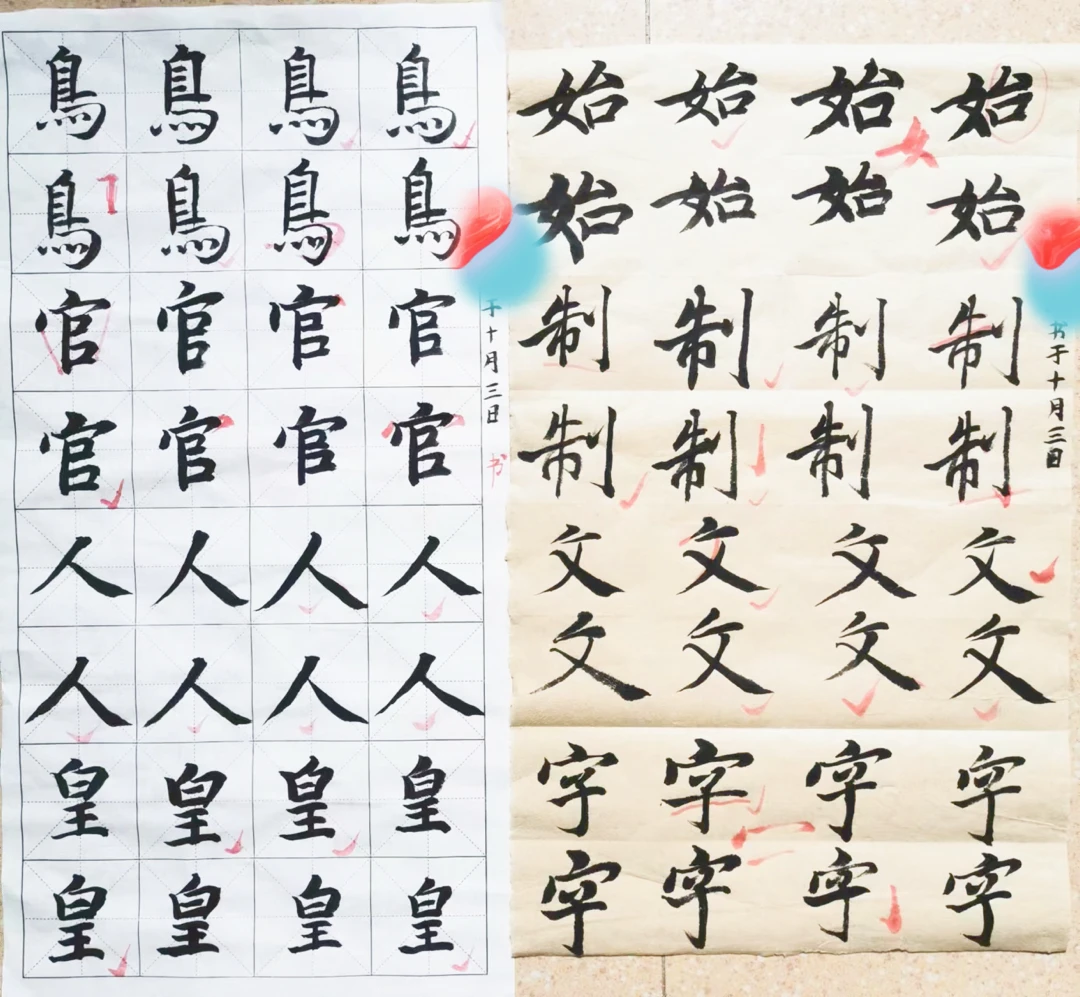 鳥鳥鳥鳥
鳥鳥鳥鳥
官官官官
官官官官
人人人人
人人人人
皇皇皇皇
皇皇皇皇
于十月三日
书
始始始始
始始始始
制制制制
制制制制
文文文文
文文文文
字字字字
字字字字
书于十月三日